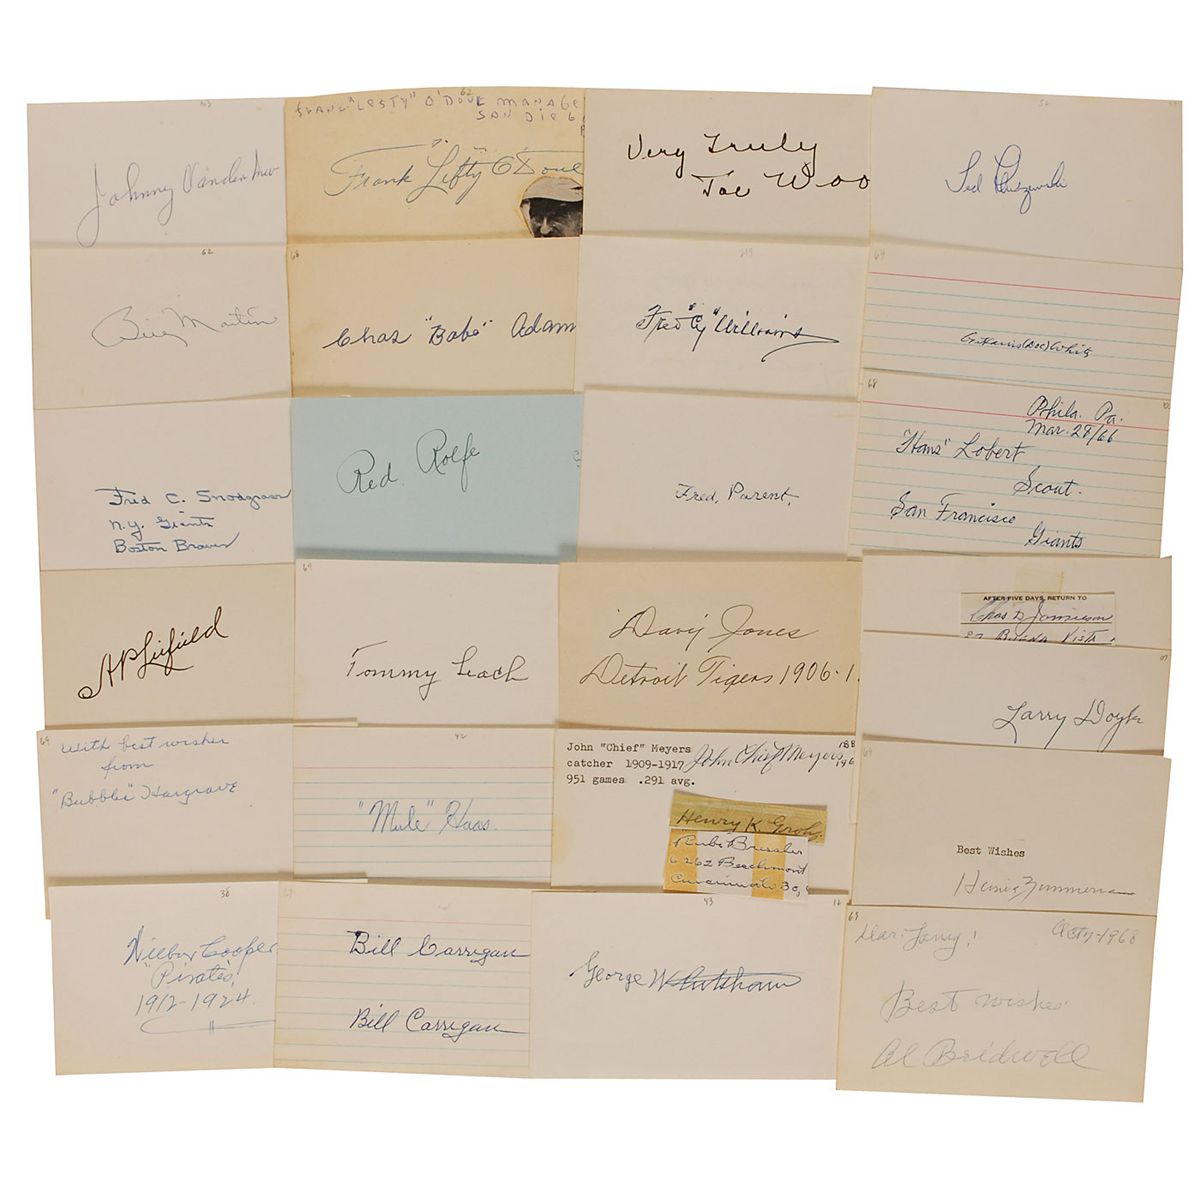 53
Johnny Vander Mee
62
FRANK "LEFTY" O'DOUL MANAGE
SAN DIEG
Frank "Lefty" O'Doul
Very Truly
Joe Woo
Ted Kluszewski
62
Bill Martin
63
Chas "Babe" Adam
Fred "Cy" Williams
64
G. Harris (Doc) White
Fred C. Snodgrass
N.Y. Giants
Boston Braves
Red Rolfe
Fred. Parent.
68
Phila. Pa.
Mar. 28/66
"Hans" Lobert
Scout.
San Francisco
Giants
A P Leifield
69
Tommy Leach
Davy Jones
Detroit Tigers 1906-1
AFTER FIVE DAYS, RETURN TO
Chas D Jamieson
Buena Vista
Larry Doyle
64
With best wishes
from
"Bubbles" Hargrave
42
"Mule" Haas.
John "Chief" Meyers
catcher 1909-1917
951 games .291 avg.
John Chief Meyers
188
196
Henry K. Groh
"Rube" Bressler
6262 Beechmont
Cincinnati 30, O
69
Best Wishes
Heinie Zimmerman
38
Wilbur Cooper
"Pirates"
1912-1924.
Bill Carrigan
Bill Carrigan
43
12
George Whitsham
65
Dear Larry!
Oct 7-1968
Best wishes
Al Bridwell